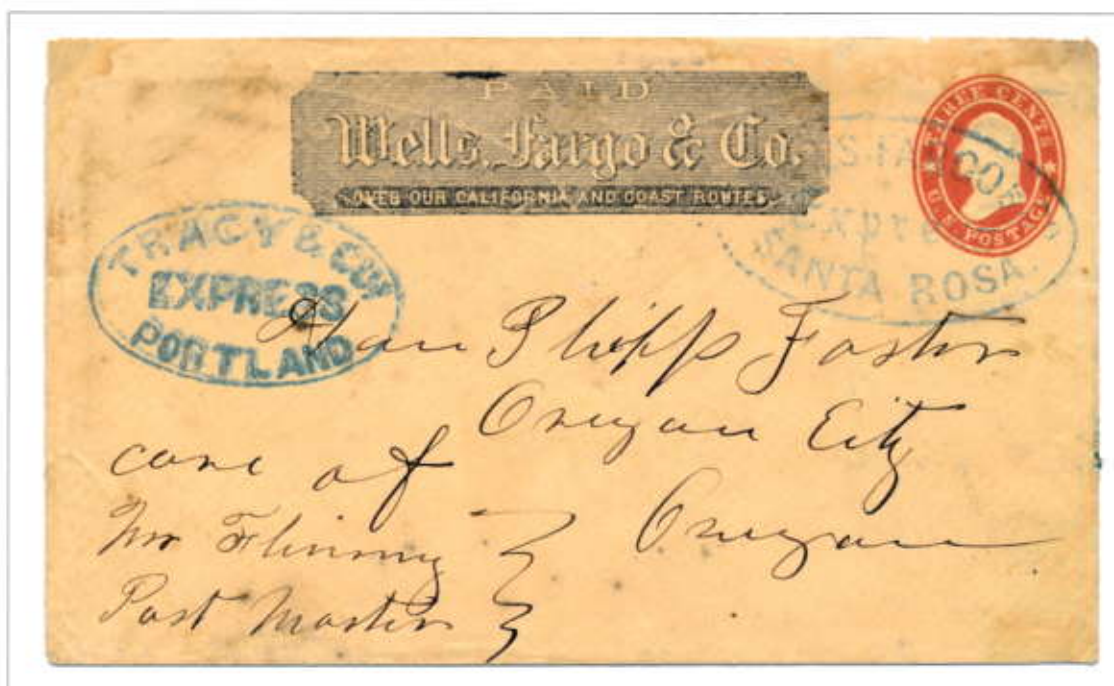 PAID
Wells, Fargo & Co.
OVER OUR CALIFORNIA AND COAST ROUTES.
THREE CENTS
U.S. POSTAGE
S. FARGO &
Expre
SANTA ROSA.
TRACY & CO'S
EXPRESS
PORTLAND
Phlipp Foster
Oregon City
Oregon
care of
Mr
Post Master